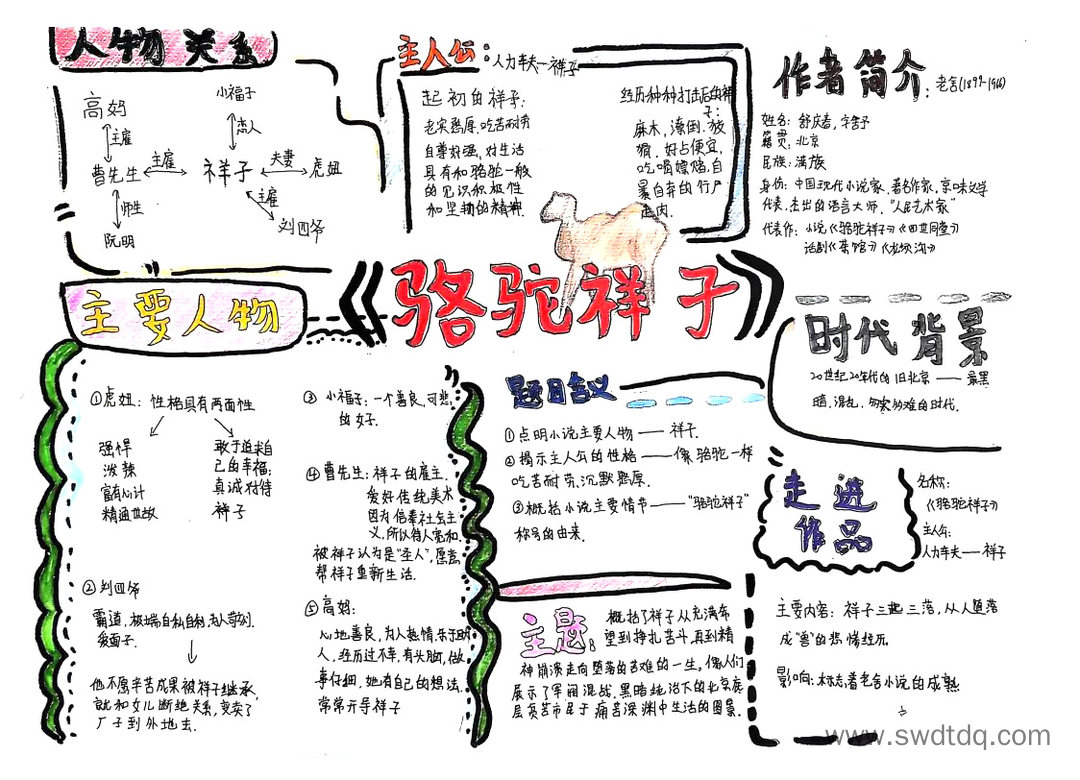 人物关系
小福子
高妈
恋人
主雇
曹先生
主雇
祥子
夫妻
虎妞
师生
主雇
阮明
刘四爷
主人公：人力车夫—祥子
起初的祥子：
老实憨厚，吃苦耐劳
自尊好强，对生活
具有和骆驼一般
的见识积极性
和坚韧的精神.
经历种种打击后的祥
子：
麻木，潦倒，放
猾，好占便宜，
吃喝嫖赌，自
暴自弃的行尸
走肉.
作者简介：老舍(1899-1966)
姓名：舒庆春，字舍予
籍贯：北京
民族：满族
身份：中国现代小说家、著名作家，京味文学
代表，杰出的语言大师，"人民艺术家"
代表作：小说《骆驼祥子》《四世同堂》
话剧《茶馆》《龙须沟》
《骆驼祥子》
主要人物
①虎妞：性格具有两面性
强悍
泼辣
富有心计
精通世故
敢于追求自
己的幸福；
真诚对待
祥子
②刘四爷
霸道，极端自私自利，为人苛刻.
爱面子.
他不愿辛苦成果被祥子继承，
就和女儿断绝关系，变卖了
厂子到外地去.
③小福子：一个善良，可悲
的女子.
④曹先生：祥子的雇主.
爱好传统美术
因为信奉社会主
义，所以待人宽和
被祥子认为是"圣人"，愿意
帮祥子重新生活.
⑤高妈：
心地善良，为人热情，乐于助
人，经历过不幸，有头脑，做
事仔细，她有自己的想法，
常常开导祥子
题目含义
①点明小说主要人物——祥子.
②揭示主人公的性格——像骆驼一样
吃苦耐劳、沉默憨厚.
③概括小说主要情节——"骆驼祥子"
称号的由来.
主题：
概括了祥子从充满希
望到挣扎苦斗，再到精
神崩溃走向堕落的苦难的一生。像人们
展示了军阀混战，黑暗统治下的北京底
层贫苦市民于痛苦深渊中生活的图景.
时代背景
20世纪20年代的旧北京——最黑
暗，混乱，多灾多难的时代.
走进
作品
名称：
《骆驼祥子》
主人公：
人力车夫——祥子
主要内容：祥子三起三落，从人堕落
成"兽"的悲惨经历.
影响：标志着老舍小说的成熟
www.swdtdq.com